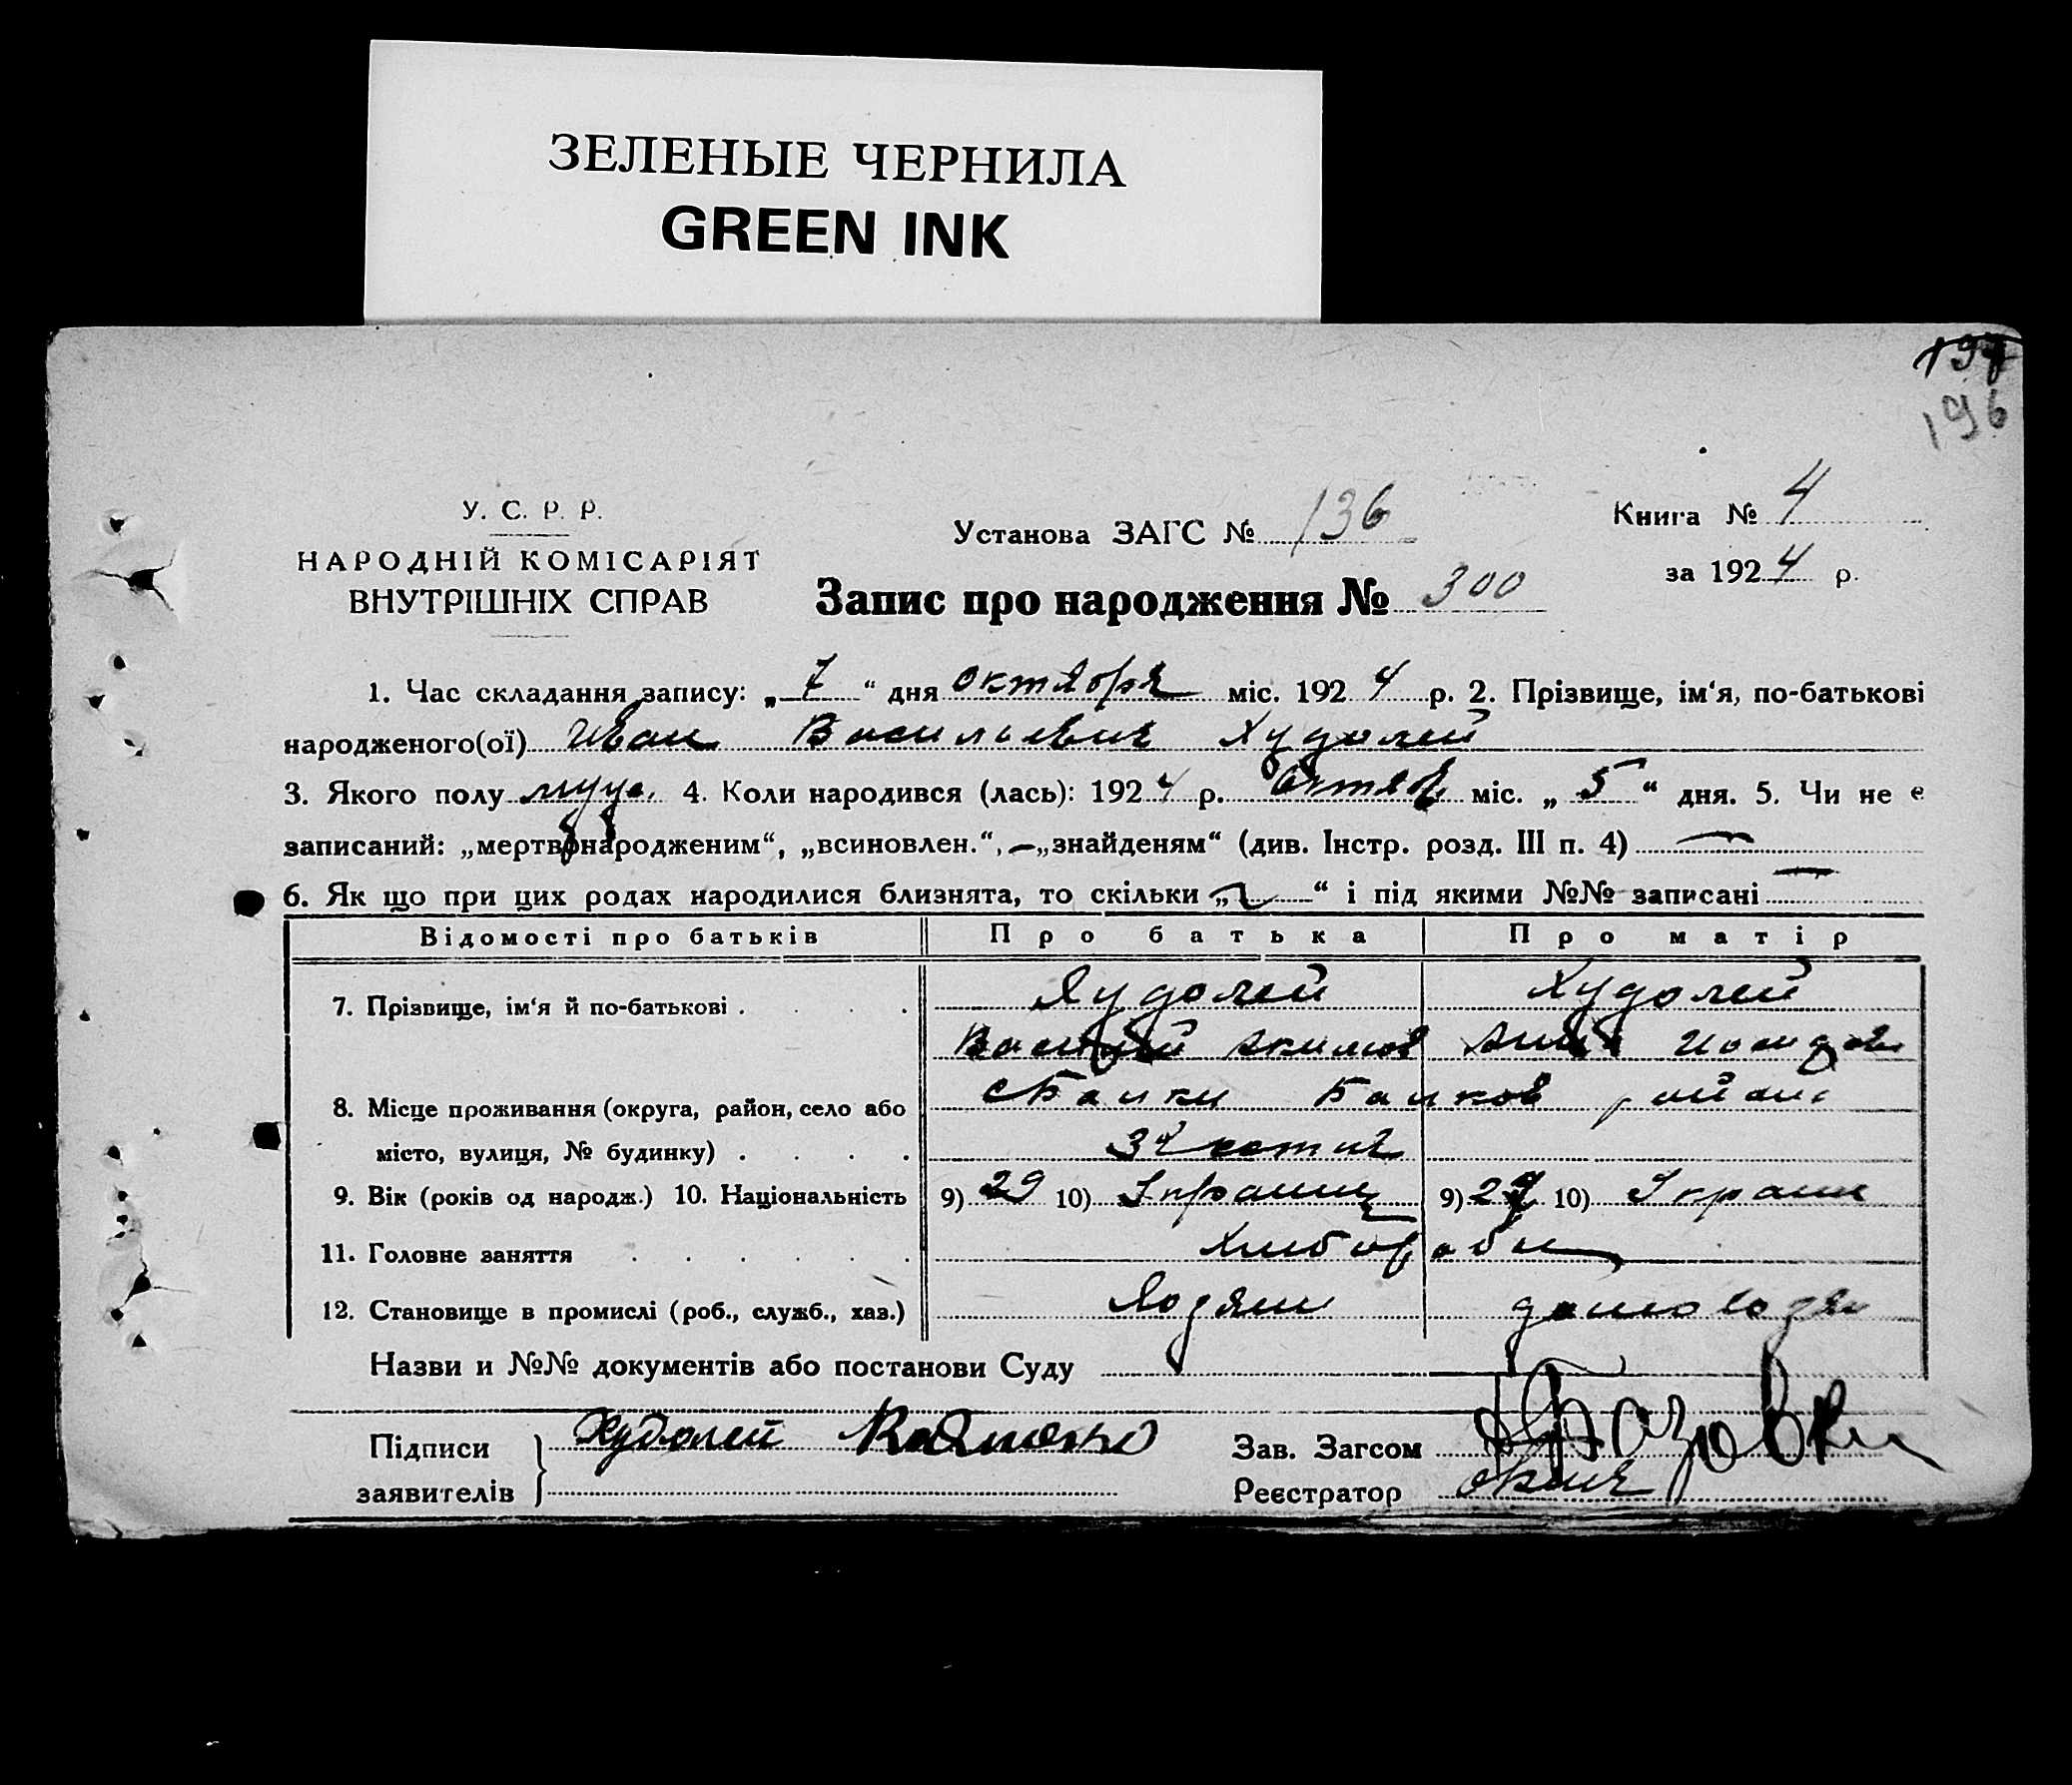 ЗЕЛЕНЫЕ ЧЕРНИЛА
GREEN INK
196
У. С. Р. Р.
НАРОДНІЙ КОМІСАРІЯТ
ВНУТРІШНІХ СПРАВ
Установа ЗАГС № 136
Книга № 4
за 1924 р.
Запис про народження № 300
1. Час складання запису: „7“ дня октября міс. 1924 р. 2. Прізвище, ім‘я, по-батькові
народженого(ої) Иван Васильевич Худолей
3. Якого полу муж. 4. Коли народився (лась): 1924 р. Октяб міс. „5“ дня. 5. Чи не є
записаний: „мертвонародженим“, „всиновлен.“, „знайденям“ (див. Інстр. розд. III п. 4) —
6. Як що при цих родах народилися близнята, то скільки „ “ і під якими №№ записані —
Відомості про батьків Про батька Про матір
7. Прізвище, ім‘я й по-батькові . . . . Худолей Худолей
Василий Акимов Анна
8. Місце проживання (округа, район, село або с Балки Балков район
місто, вулиця, № будинку) . . . .
9. Вік (років од народж.) 10. Національність 9) 29 10) Украинц 9) 27 10) Украин
11. Головне заняття . . . . . Хлиборобы
12. Становище в промислі (роб., служб., хаз.) Хозяин домохозяй
Назви и №№ документів або постанови Суду
Підписи Худолей
заявителів
Зав. Загсом
Реєстратор